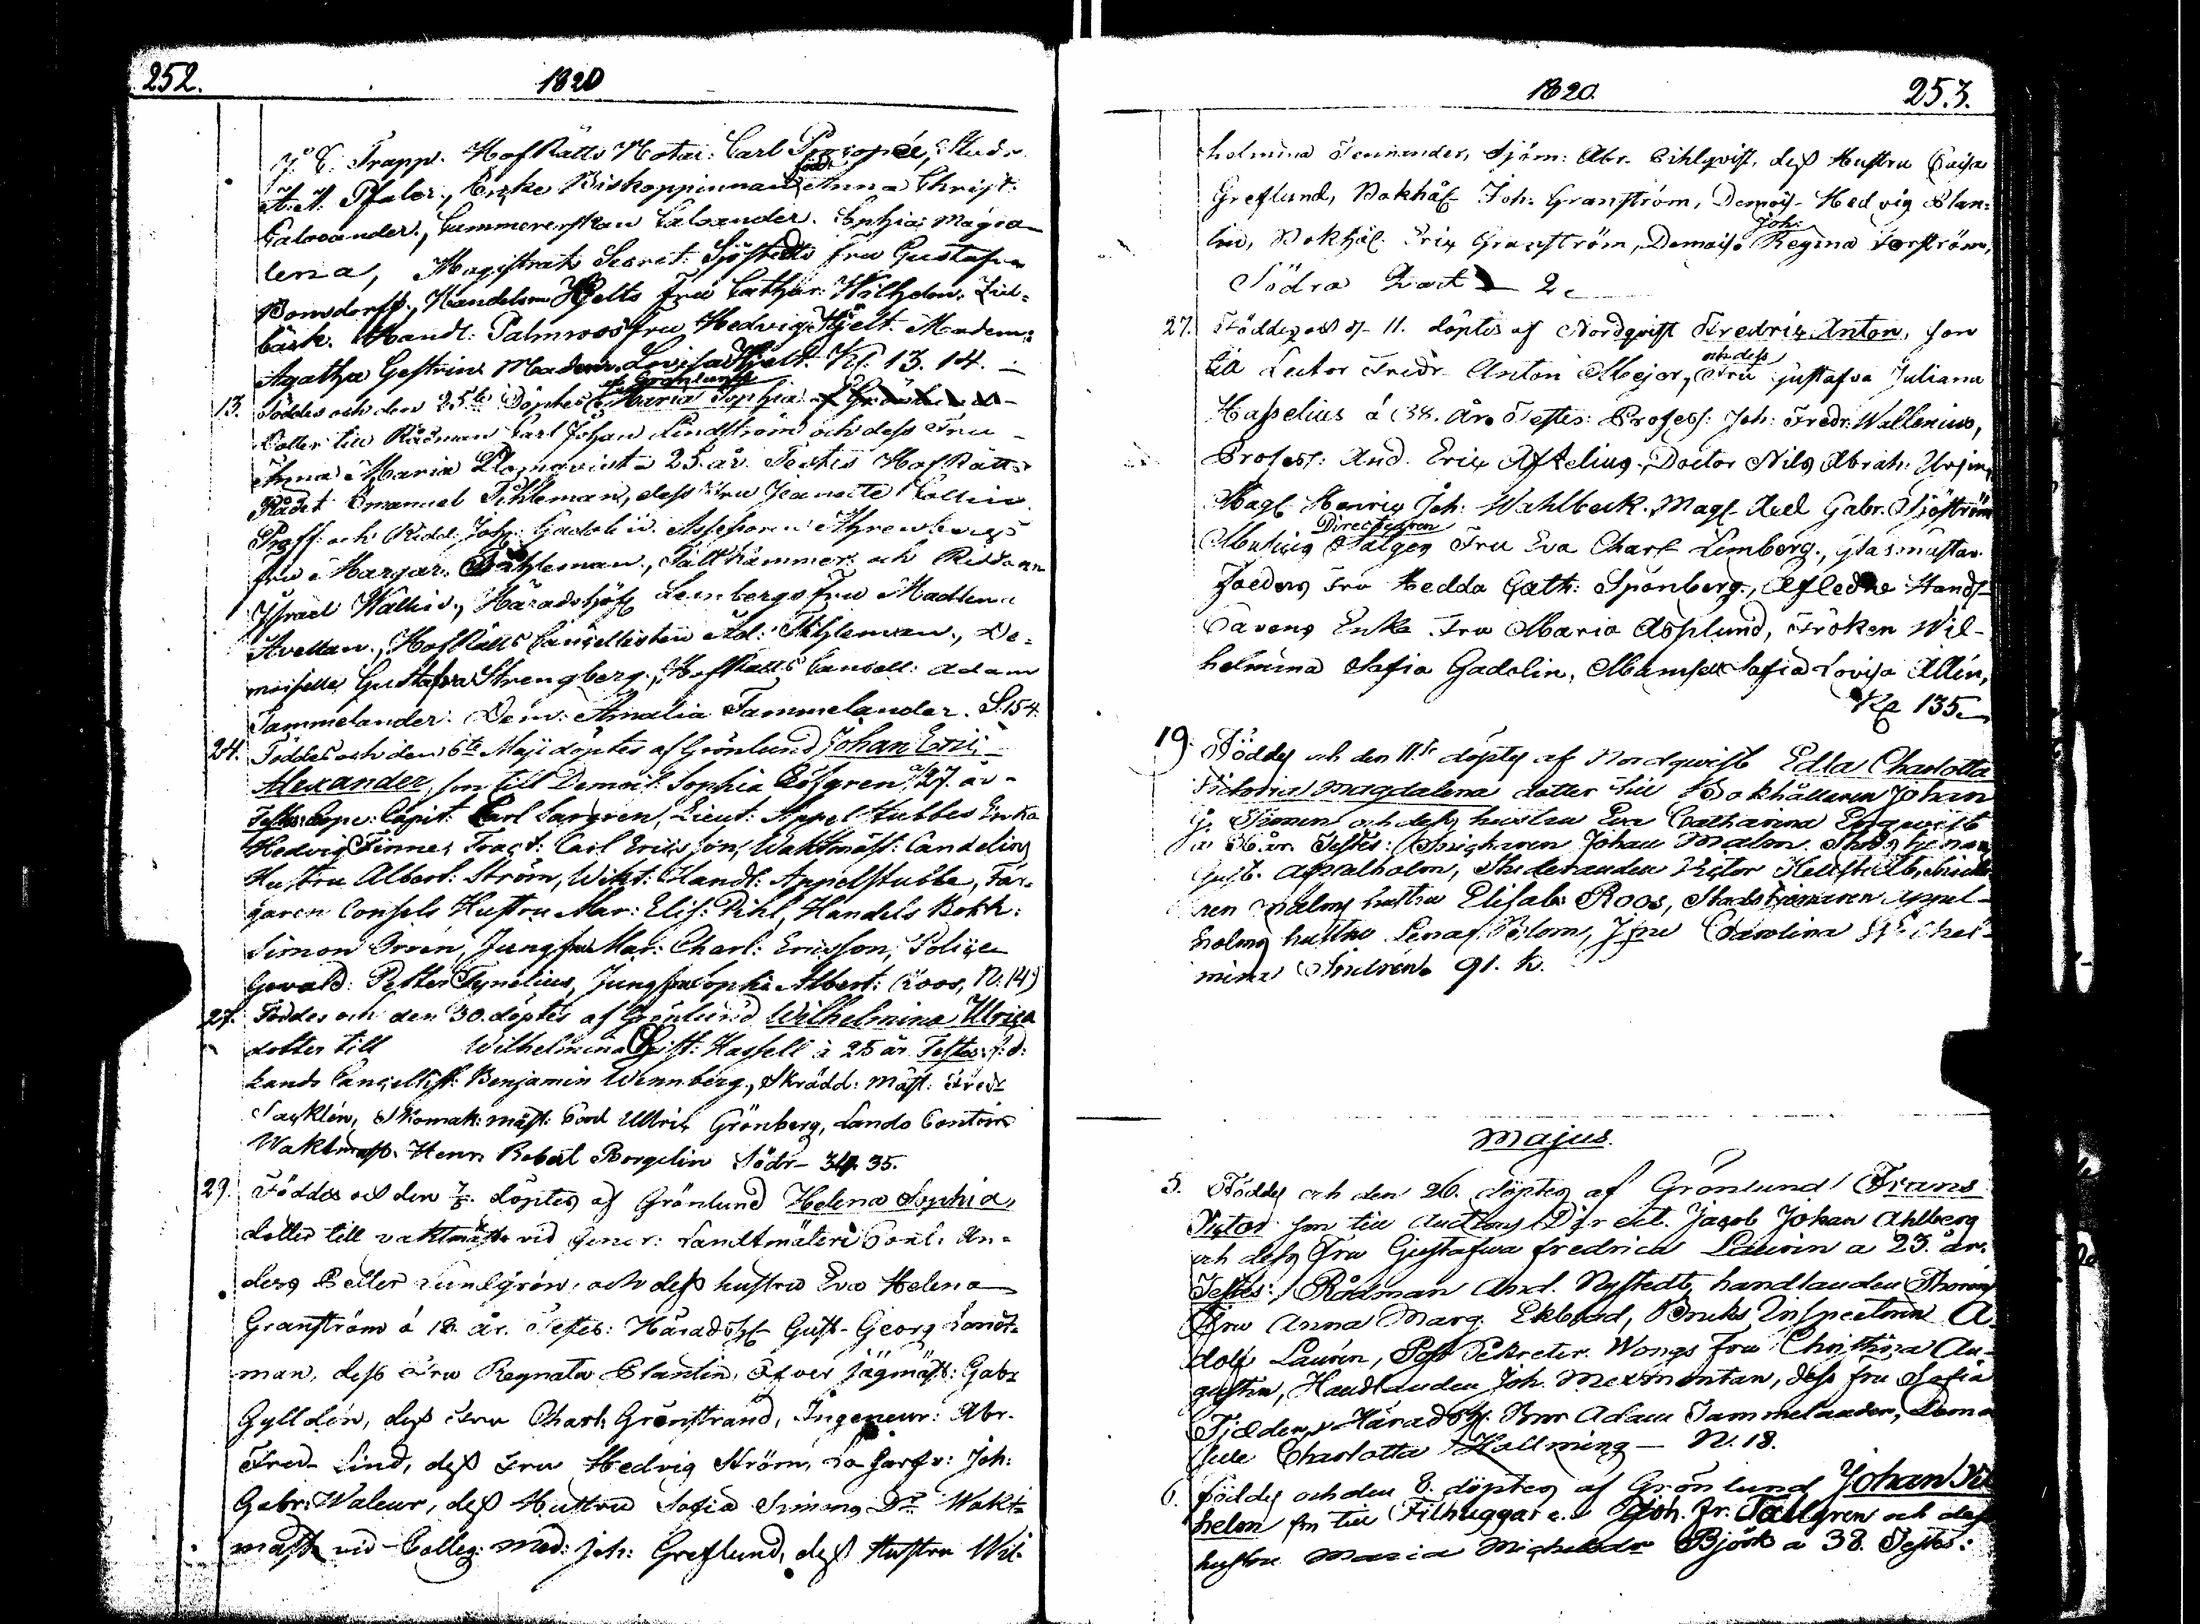 252. 1820
J. E. Trapp. HofRätts Notar: Carl Procopée, Stud:
A. A. Pfaler, Enke Biskoppinnan född Anna Christ:
Calonander, Cammererskan Caloander. Sophia Magda
lena, Magistrats Secret: Sjöstedts Fru Gustafva
Bonsdorff, Handelsm Hjelts Fru Cathar: Wilhelm: Lid-
bäck. Handl: Palmroos fru Hedvig Hjelt. Madem:
Agatha Gestrin Madem. Lovisa Hjelt. Kl. 13. 14.
13. Föddes och den 25te Döptes af Grönlund Maria Sophia
Dotter till Rådman Carl Johan Lindström och dess Fru
Anna Maria Blomqvist a 25. år. Testes HofRätts
Rådet Emanuel Tihleman, dess Fru Jeanette Kallin
Proff: och Ridd: Joh: Gadolin. Assessoren Ahrenberg
fru Margar: Tihleman, Fältkammer: och Riddaren
Israel Wallin, Häradshöf Lembergs Fru Madlena
Avellan, HofRätts Cancellisten Ad: Tihleman, De-
moiselle Gustafva Strengberg, HofRätts Cancell: Adam
Tammelander. Dem: Amalia Tammelander. S. 154.
24. Föddes och den 6te Maji döptes af Grönlund Johan Eric
Alexander, son till Demois: Sophia Löfgren a 27. år
Testes: Capit: Carl Largren, Lieut: Appelstubbes Enka
Hedvig Finne, Tract: Carl Ericsson, Waktmäst: Candelins
Hustru Albert: Ström, Wikt: Handl: Appelstubbe, Fär-
garen Consels Hustru Mar: Elis: Pihl, Handels Bokh:
Simon Orrén, Jungfru Mar: Charl: Ericsson, Police
Gevald: Petter Synelius, Jungfru Sophia Albert: Roos, N: 14)
27. Föddes och den 30. döptes af Grönlund Wilhelmina Ulrica
dotter till Wilhelmina Christ: Hassell à 25 år Testes: f: d:
Lands Cancellist: Benjamin Wennberg, Skrädd: mäst: Fredr
Sacklén, Skomak: mäst: Carl Ulric Grönberg, Lands Contoirs
Waktmäst: Henr Robert Borgelin Södr- 34. 35.
29. Föddes och den 7/5. döptes af Grönlund Helena Sophia,
dotter till vaktmäst vid Gener: Landtmäteri Cont: An-
ders Petter Lundgrén, och dess hustru Eva Helena
Granström à 18. år. Testes: Häradshöf Gust- Georg Landt-
man, dess Fru Regnata Blantin, Öfver Jägmäst: Gabr
Gylldén, dess Fru Charl: Grönstrand, Ingenieur: Abr.
Fred- Lind, dess Fru Hedvig Ström, Joh:
Gabr: Waleur, dess Hustru Sofia Simons Dr Wakt-
mäst vid Colleg: med: Joh: Greflund, dess Hustru Wil-
1820. 253.
helmina Fennander, Sjöm: Abr. Cihlqvist, dess Hustru Caisa
Greflund, Bokhåll Joh: Granström, Demois- Hedvig Blan-
tin, Bokhål: Eric Granström, Demois: Joh: Regina Forström,
Södra Qvart 2.
27. Föddes och d- 11. döptes af Nordqvist Fredric Anton, son
till Lector Fridr- Anton Meyer, och dess Fru Gustafva Juliana
Hasselius à 38. år. Testes: Profess: Joh: Fredr: Wallenius,
Profess: And. Eric Afzelius, Doctor Nils Abrah: Ursin,
Mag: Henric Joh: Wahlbeck. Mag: Axel Gabr. Sjöström
Musices Directeuren Salges Fru Eva Charl Lemberg, Glasmästar
Zoeders Fru Hedda Cath: Spönberg, Afledne Handl-
Cavens Enka Fru Maria Asplund, Fröken Wil-
helmina Sofia Gadolin, Mamsell Sofia Lovisa Allén,
Kl 135.
19. Föddes och den 11te döptes af Nordqwist Edla Charlotta
Victoria Magdalena dotter till Bokhållaren Johan
G. Simen och dess hustru Eva Catharina Engqwist
a år Testes: Johan Malm.
Gust. Appelholm, Studeranden Victor Hellsted,
ren Malms hustru Elisab: Roos, Stadstjenaren Appel-
holms hustru Lena Blom, Jfru Carolina Wilhel-
mina Sindrén. 91. k.
Majus.
5. Föddes och den 26. döptes af Grönlund Frans
Victor son till Auctions Direct. Jacob Johan Ahlberg
och dess Fru Gustafwa Fredrica Laurin a 23. år.
Testes: Rådman And. Nystedt, handlanden Thorins
Fru Anna Marg. Ekblad, Bruks Inspectorn A-
dolf Laurén, Post Sekreter. Wongs fru Christina Au-
gustin, Handlanden Joh. Mexmontan, dess fru Sofia
Tjæder, Häradshf: Bror Adam Tammelander, Demo
selle Charlotta Hallming — N. 18.
6. Föddes och den 8. döptes af Grönlund Johan Vil
helm son till Filhuggar Joh. Fr. Tallgren och dess
hustru Maria Michelsdr Björk a 38. Testes: